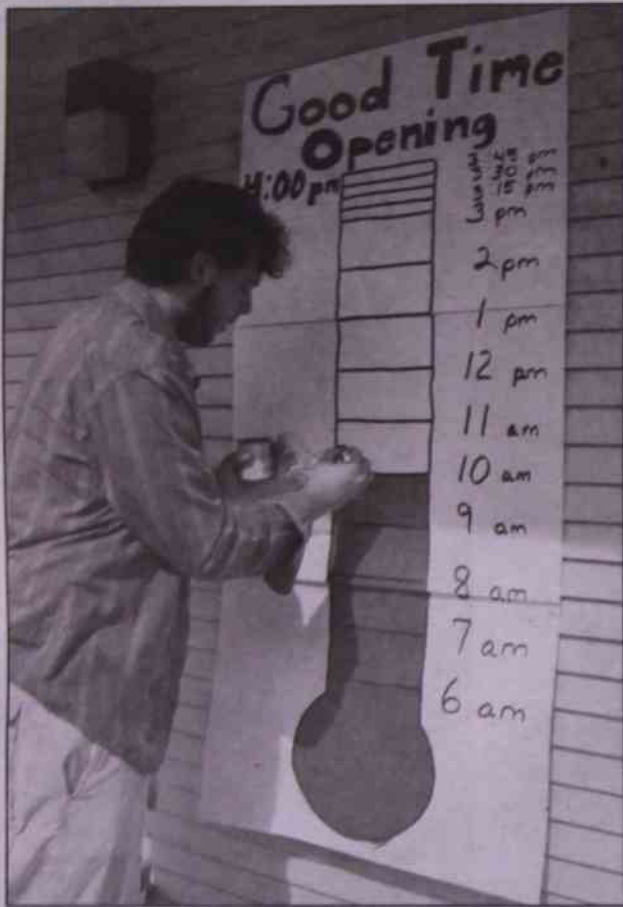 Good Time
Opening
4:00 pm
3:45 pm
3:30 pm
3:15 pm
3 pm
2 pm
1 pm
12 pm
11 am
10 am
9 am
8 am
7 am
6 am